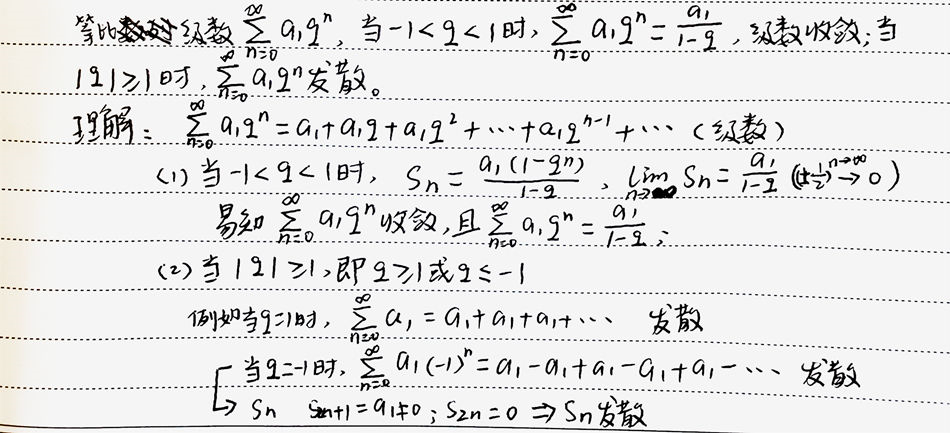 等比级数 ∑_{n=0}^{∞} a₁qⁿ, 当-1<q<1时, ∑_{n=0}^{∞} a₁qⁿ = a₁/(1-q), 级数收敛;当
|q|≥1时, ∑_{n=0}^{∞} a₁qⁿ发散。
理解: ∑_{n=0}^{∞} a₁qⁿ = a₁+a₁q+a₁q²+⋯+a₁qⁿ⁻¹+⋯ (级数)
(1) 当-1<q<1时, Sn = a₁(1-qⁿ)/(1-q), lim_{n→∞} Sn = a₁/(1-q) ((±1/2)^{n→∞}→0)
易知 ∑_{n=0}^{∞} a₁qⁿ收敛,且 ∑_{n=0}^{∞} a₁qⁿ = a₁/(1-q);
(2) 当|q|≥1,即q≥1或q≤-1
例如当q=1时, ∑_{n=0}^{∞} a₁ = a₁+a₁+a₁+⋯ 发散
当q=-1时, ∑_{n=0}^{∞} a₁(-1)ⁿ = a₁-a₁+a₁-a₁+a₁-⋯ 发散
Sn S2n+1=a₁≠0; S2n=0 ⇒ Sn发散